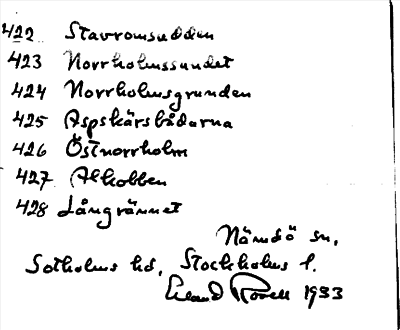 422 Stavromsudden
423 Norrholmssundet
424 Norrholmsgrunden
425 Aspskärsbådarna
426 Östnorrholm
427 Alkobben
428 Långrännet
Nämdö sn,
Sotholms hd, Stockholms l.
Erland Rosell 1933